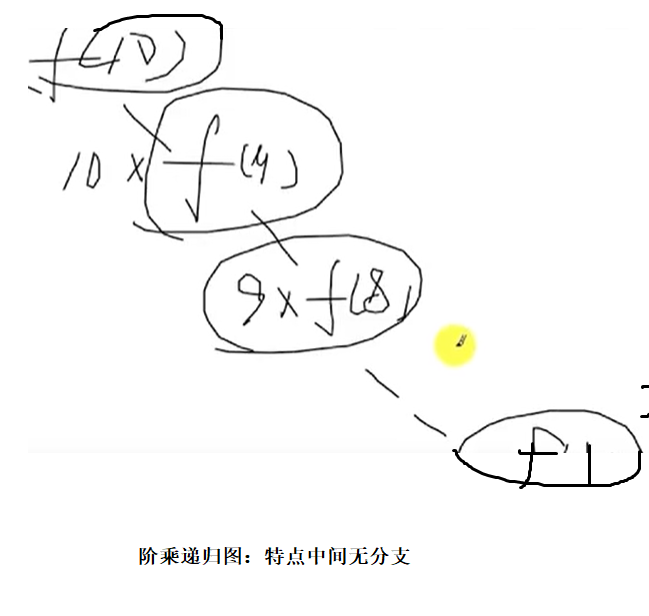 f(10)
10 × f(9)
9 × f(8)
f 1
阶乘递归图：特点中间无分支